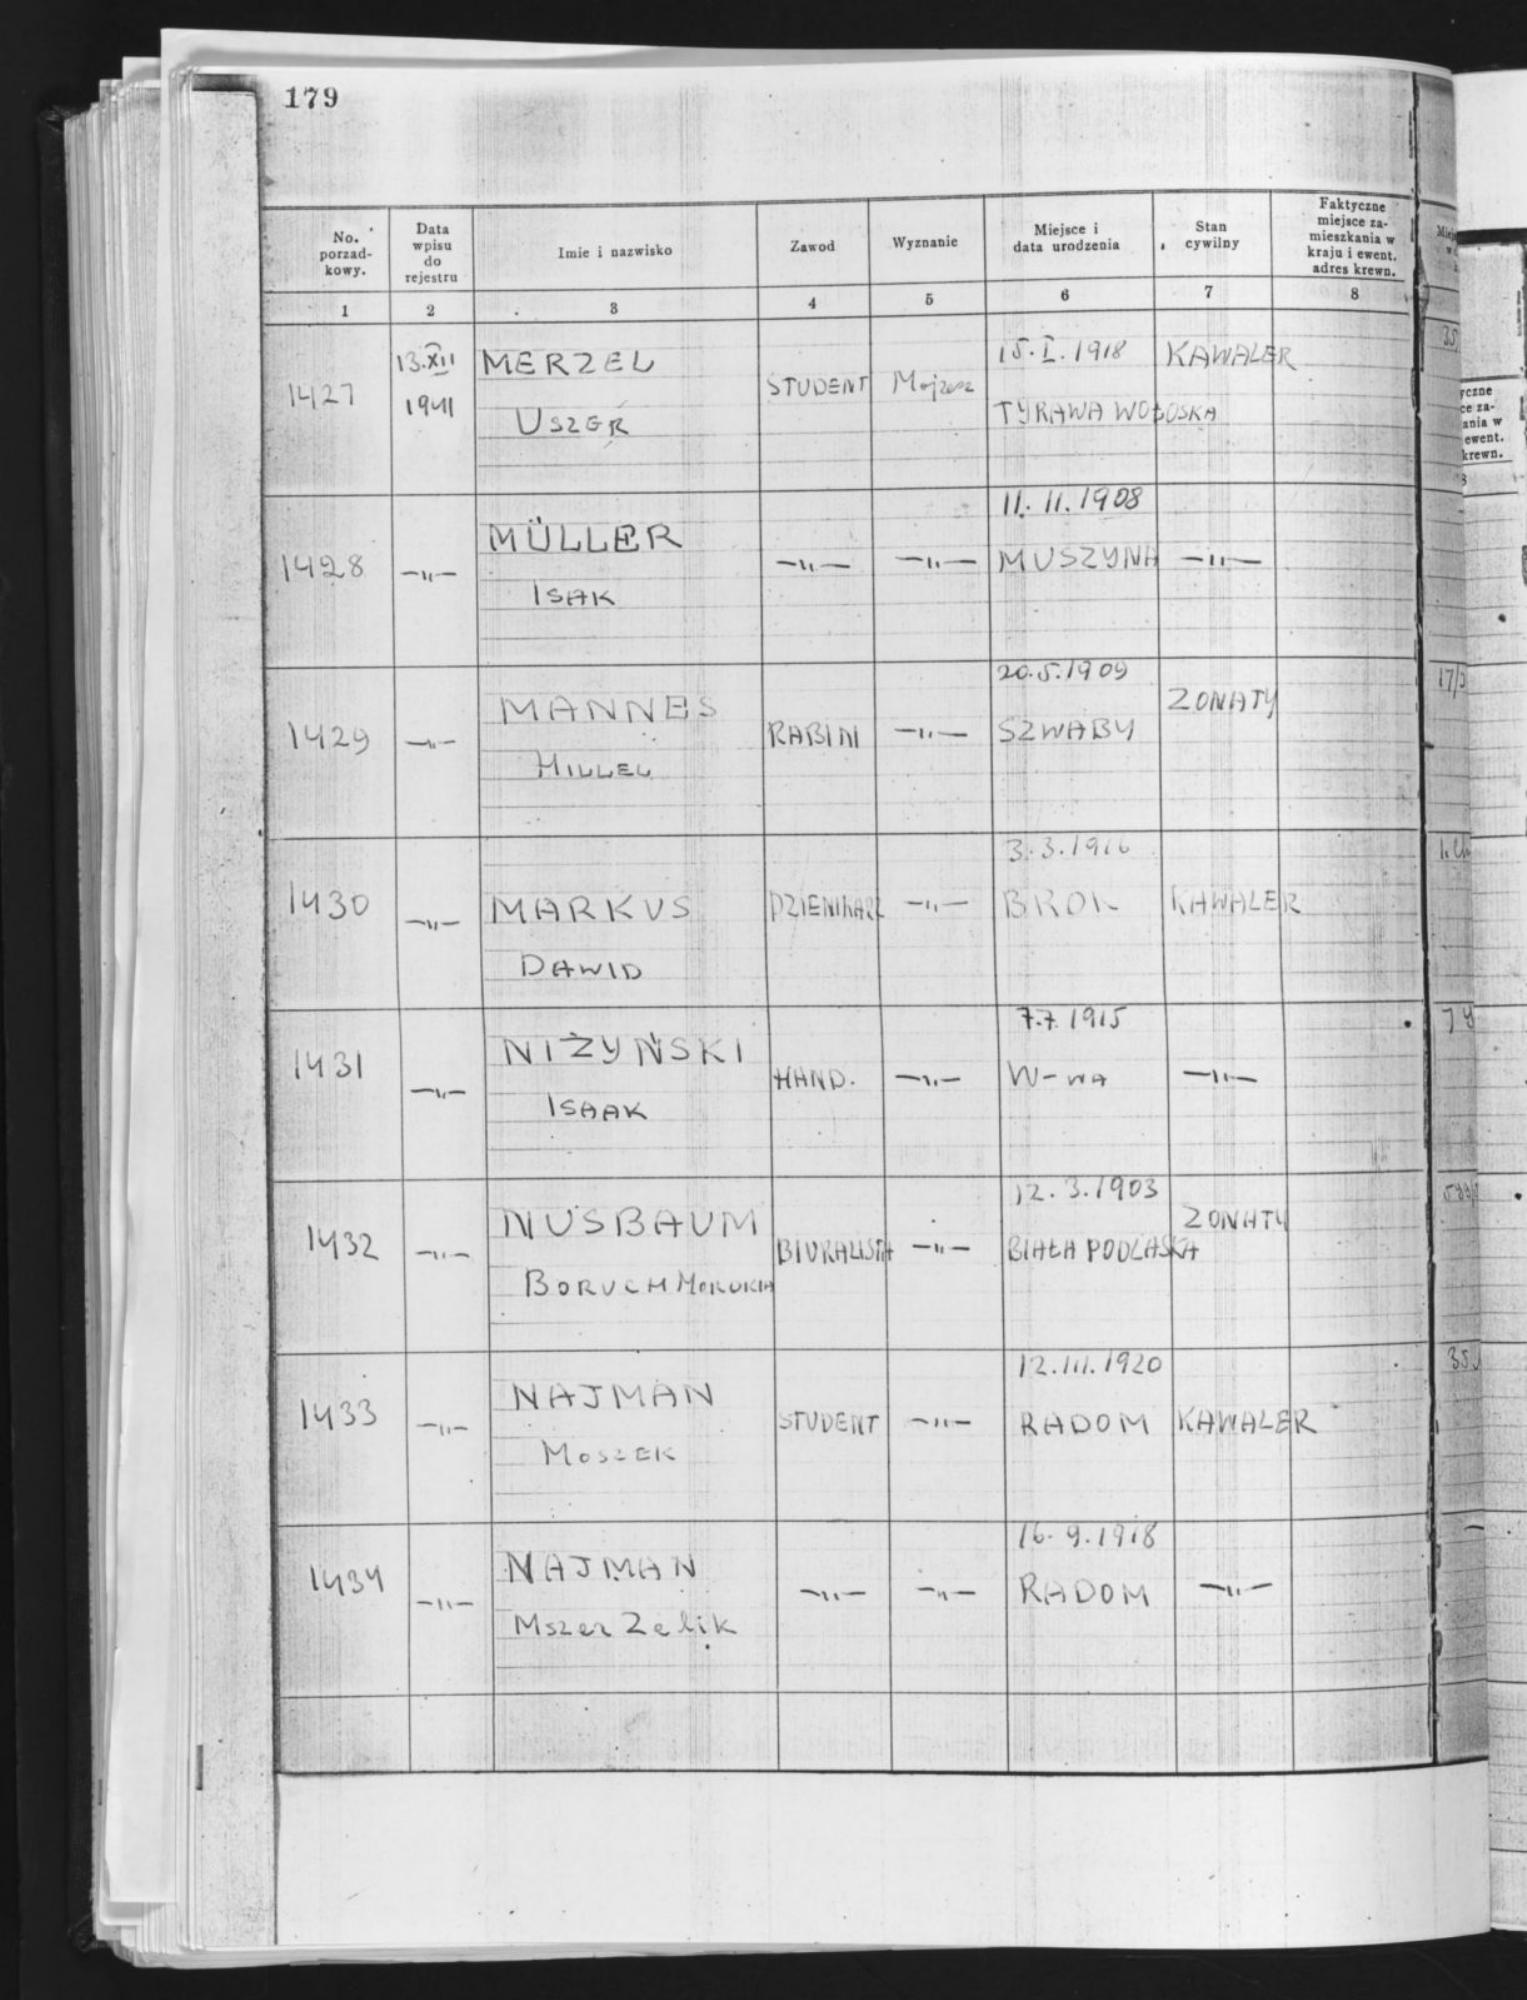 179
No. porzad- kowy.
Data wpisu do rejestru
Imie i nazwisko
Zawod
Wyznanie
Miejsce i data urodzenia
Stan cywilny
Faktyczne miejsce za- mieszkania w kraju i ewent. adres krewn.
1 2 3 4 5 6 7 8
13.XII 1941
15.I.1918
1427 MERZEL STUDENT Mojżesz KAWALER
USZER TYRAWA WOŁOSKA
11. 11. 1908
MÜLLER
1428 —"— —"— —"— MUSZYNA —"—
ISAK
20.5.1909
MANNES ZONATY
1429 —"— RABIN —"— SZWABY
HILLEL
3.3.1916
1430 —"— MARKUS DZIENIKARZ —"— BROK KAWALER
DAWID
7.7.1915
NIŻYŃSKI
1431 —"— HAND. —"— W-WA —"—
ISAAK
12.3.1903
NUSBAUM ZONATY
1432 —"— BIURALISTA —"— BIAŁA PODLASKA
BORUCH
12.III.1920
NAJMAN
1433 —"— STUDENT —"— RADOM KAWALER
MOSZEK
16.9.1918
NAJMAN
1434 —"— —"— —"— RADOM —"—
Mszer Zelik
yczne
ce za-
ania w
ewent.
krewn.